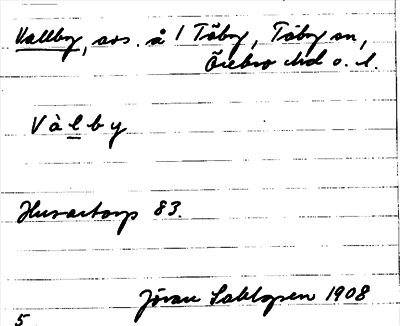 Vallby, avs. å 1 Täby, Täby sn,
Örebro hd o. l.
Vàlby
Husartorp 83.
Jöran Sahlgren 1908
5